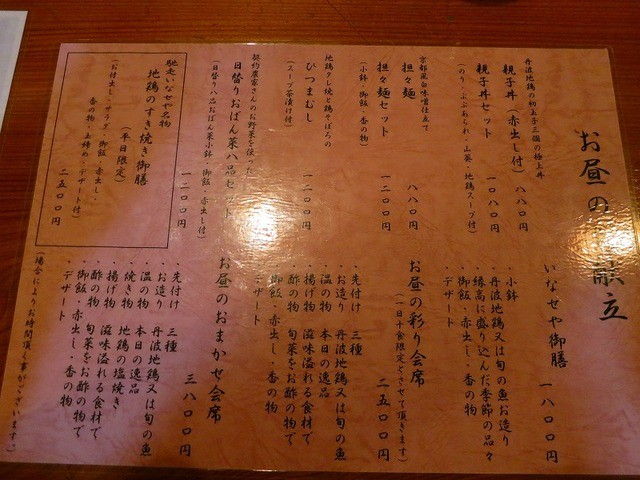 お昼の献立
丹波地鶏の初玉子三個の極上丼
親子丼（赤出し付）　八八〇円
親子丼セット　一〇八〇円
（のり・ぶぶあられ・山葵・地鶏スープ付）
京都風白味噌仕立て
担々麺　八八〇円
担々麺セット　一二〇〇円
（小鉢・御飯・香の物）
地鶏タレ焼と鶏そぼろの
ひつまむし　一二〇〇円
（スープ茶漬け付）
契約農家さんのお野菜を使った
日替りおばん菜八品セット　一二〇〇円
（日替り八品おばん菜小鉢・御飯・赤出し付）
馳走いなせや名物
地鶏のすき焼き御膳
（平日限定）　二五〇〇円
（お付出し・サラダ・御飯・赤出し・
香の物・土締め・デザート付）
いなせや御膳　一八〇〇円
・小鉢
・丹波地鶏又は旬の魚お造り
・縁高に盛り込んだ季節の品々
・御飯・赤出し・香の物
・デザート
お昼の彩り会席　二五〇〇円
（一日十食限定とさせて頂きます）
・先付け　三種
・お造り　丹波地鶏又は旬の魚
・温の物　本日の逸品
・揚げ物　滋味溢れる食材で
・酢の物　旬菜をお酢の物で
・御飯・赤出し・香の物
・デザート
お昼のおまかせ会席　三八〇〇円
・先付け　三種
・お造り　丹波地鶏又は旬の魚
・温の物　本日の逸品
・焼き物　地鶏の塩焼き
・揚げ物　滋味溢れる食材で
・酢の物　旬菜をお酢の物で
・御飯・赤出し・香の物
・デザート
（場合によりお時間頂く事がございます。）